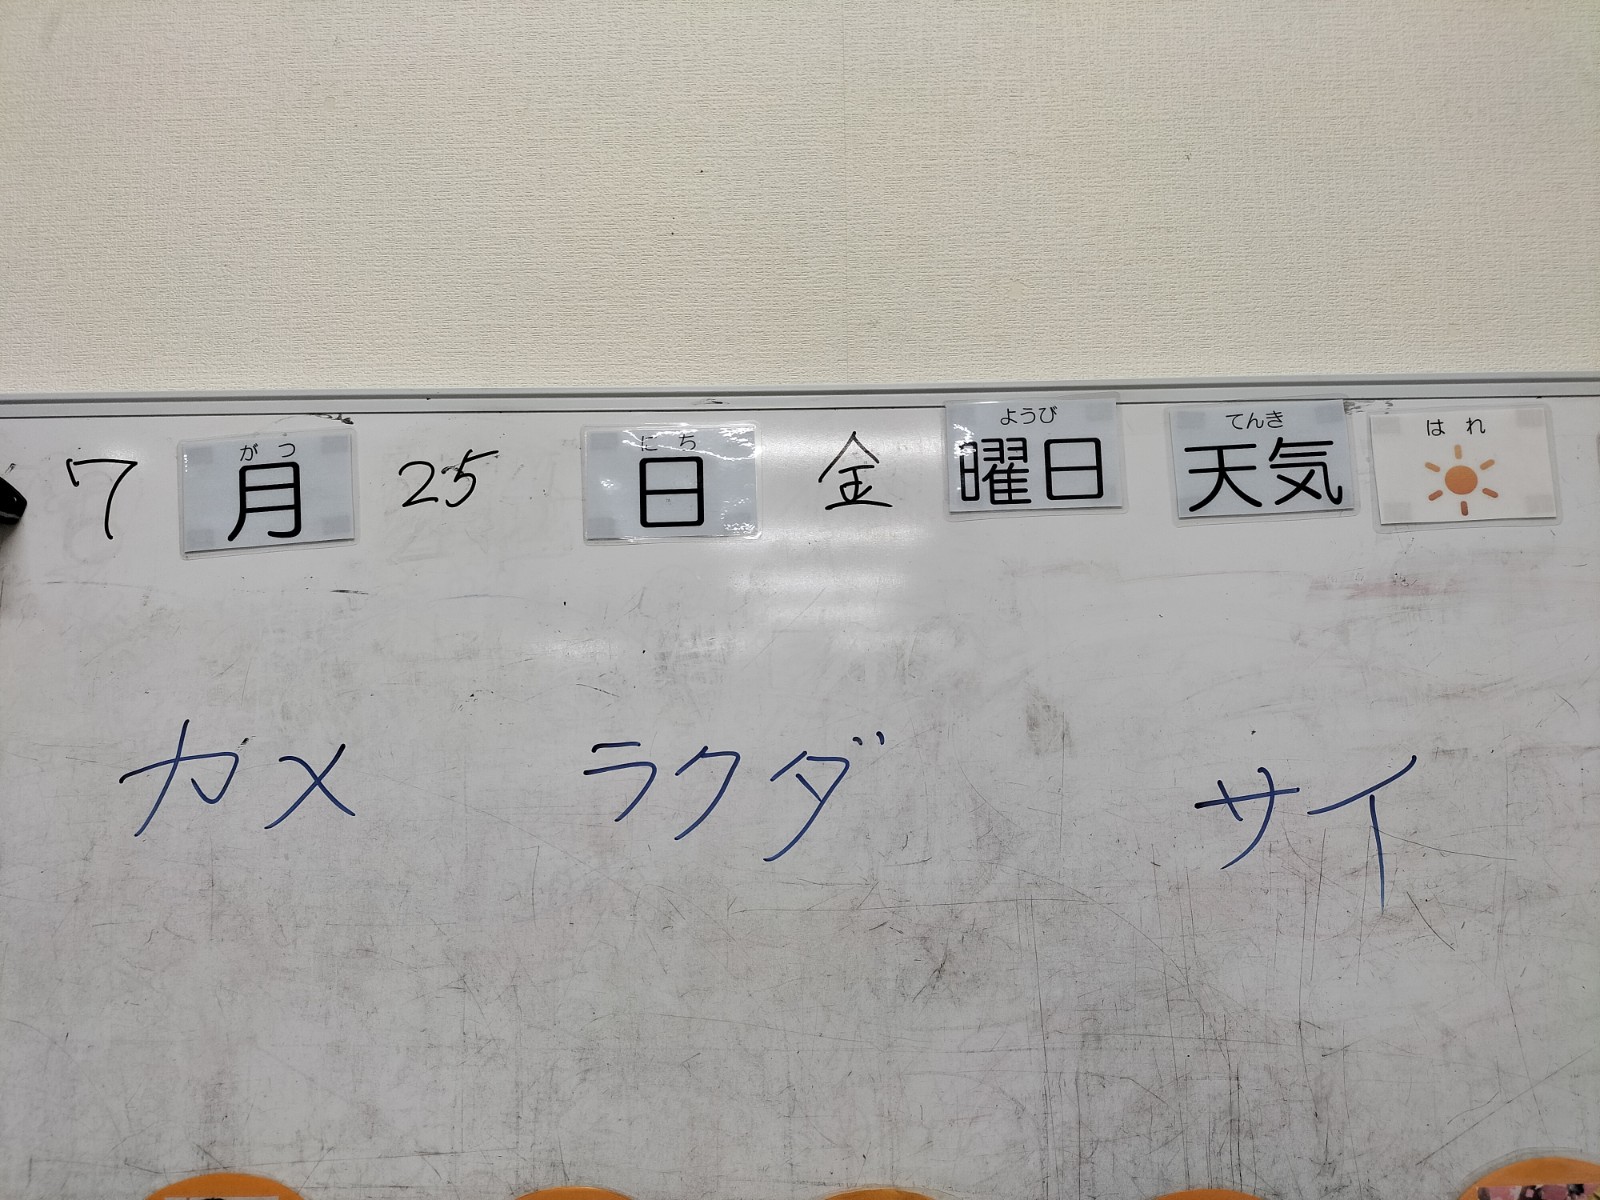 がつ にち ようび てんき はれ
7 月 25 日 金 曜日 天気
カメ ラクダ サイ